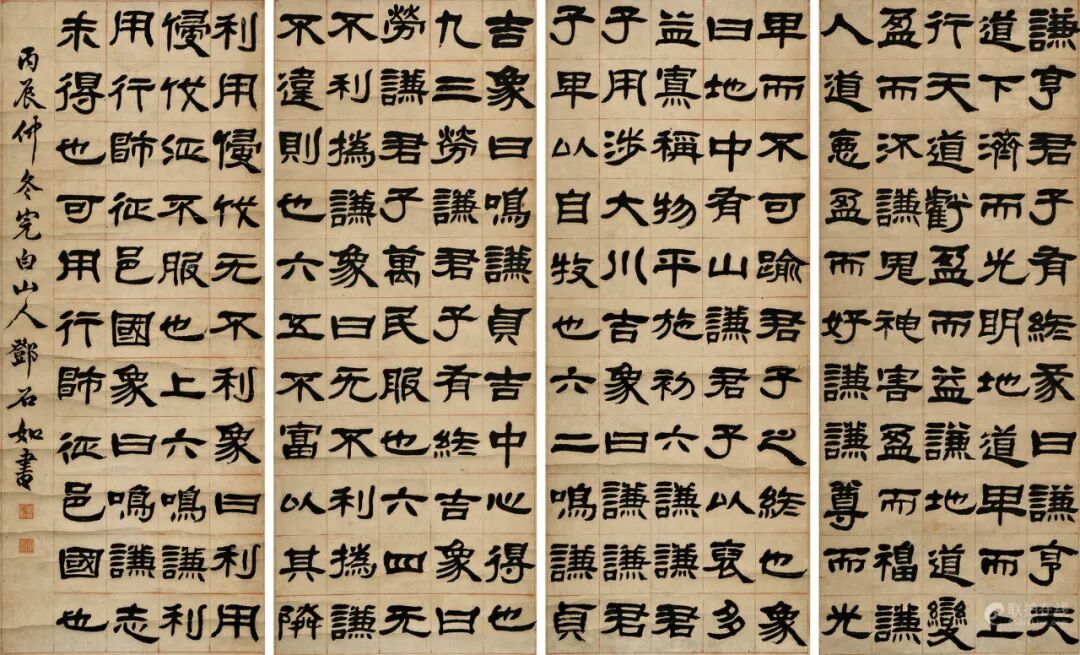 謙亨君子有終彖曰謙亨天
道下濟而光明地道卑而上
行天道虧盈而益謙地道變
盈而流謙鬼神害盈而福謙
人道惡盈而好謙謙尊而光
卑而不可踰君子之終也象
曰地中有山謙君子以裒多
益寡稱物平施初六謙謙君
子用涉大川吉象曰謙謙君
子卑以自牧也六二鳴謙貞
吉象曰鳴謙貞吉中心得也
九三勞謙君子有終吉象曰
勞謙君子萬民服也六四无
不利撝謙象曰无不利撝謙
不違則也六五不富以其隣
利用侵伐无不利象曰利用
侵伐征不服也上六鳴謙利
用行師征邑國象曰鳴謙志
未得也可用行師征邑國也
丙辰仲冬完白山人鄧石如書
联拍在线